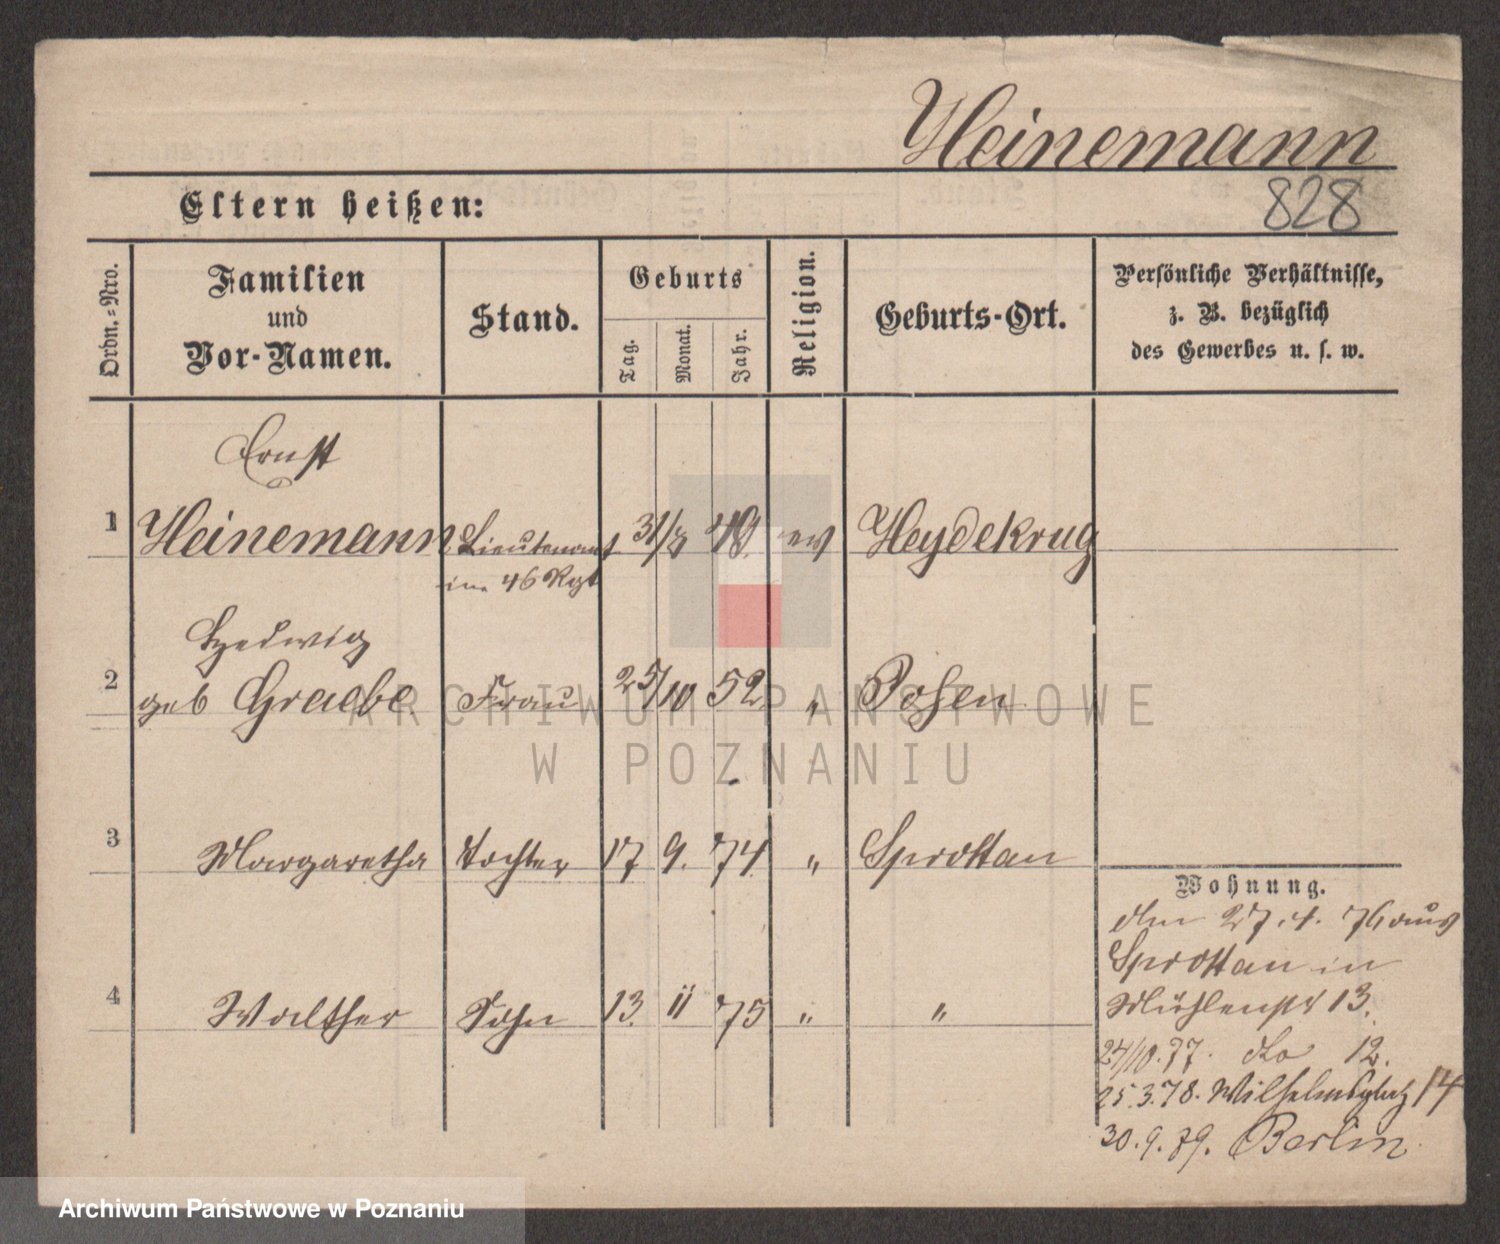 Heinemann
828
Eltern heißen:
Ordn.-Nro.
Familien
und
Vor-Namen.
Stand.
Geburts
Tag.
Monat.
Jahr.
Religion.
Geburts-Ort.
Persönliche Verhältnisse,
z. B. bezüglich
des Gewerbes u. s. w.
Ernst
1 Heinemann Lieutenant 31/8 48 ev Heydekrug
im 46 Rgt
Hedwig
2 geb Graebe Frau 25/10 52 " Posen
3 Margaretha Tochter 17 9. 74 " Sprottau
4 Walther Sohn 13. 11 75 " "
Wohnung.
den 27.4. 76 aus
Sprottau in
Mühlenstr 13.
24/10.77. do 12.
25.3.78. Wilhelmsplatz 14
30.9.79. Berlin.
ARCHIWUM PAŃSTWOWE
W POZNANIU
Archiwum Państwowe w Poznaniu